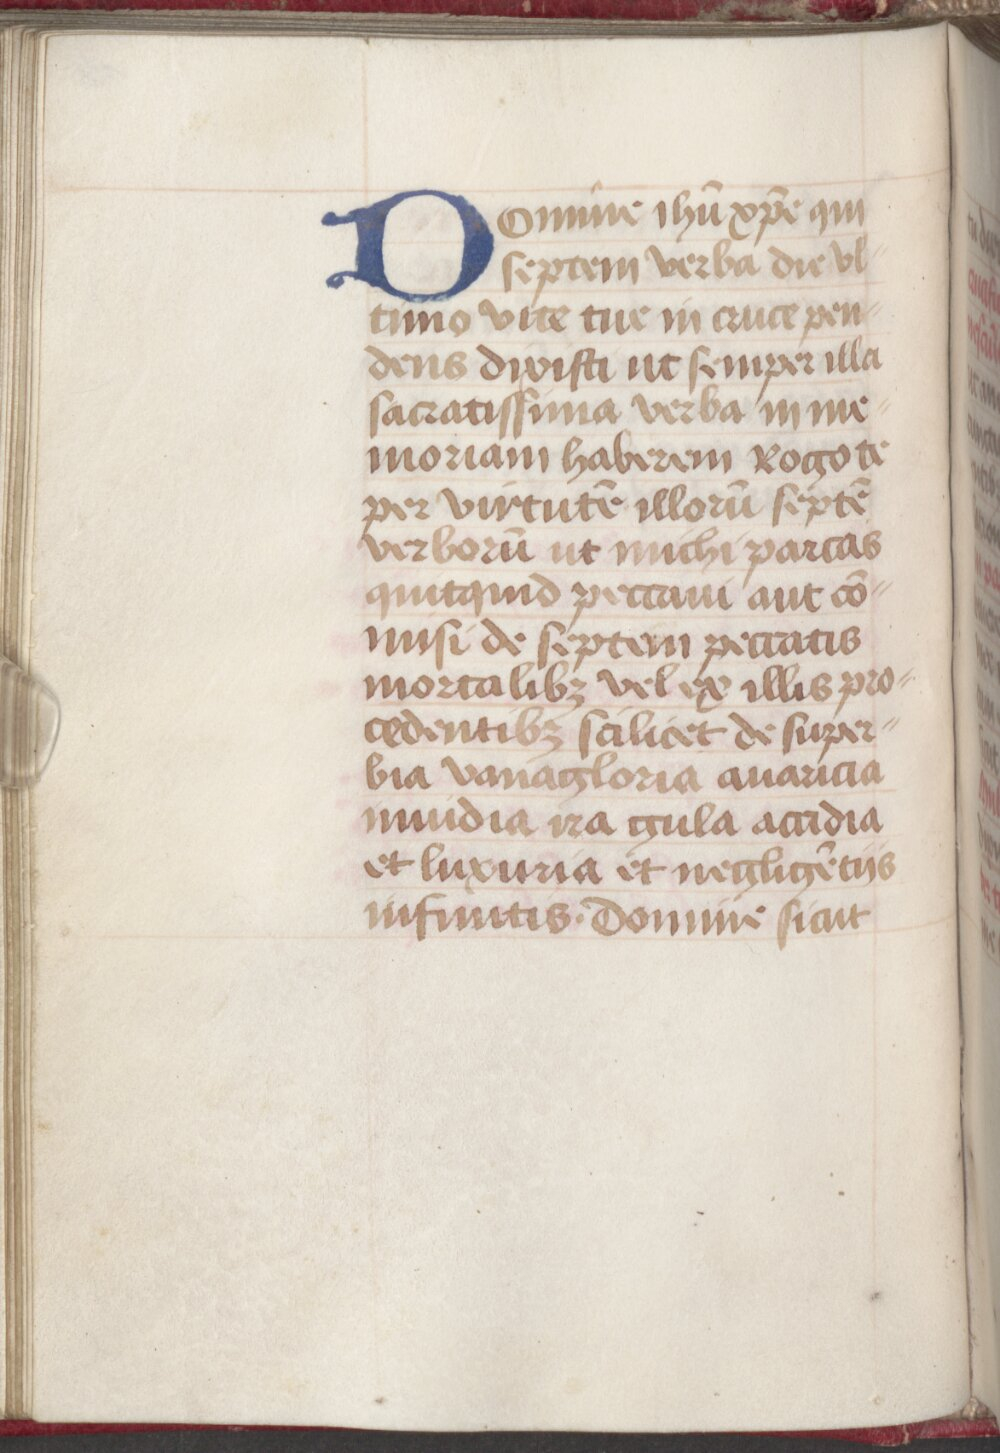 Domine ihū xp̄e qui
septem verba die vl-
timo vite tue in cruce pen-
dens dixisti ut semper illa
sacratissima verba in me-
moriam haberem Rogo te
per virtutē illorū septē
verborū ut michi parcas
quitquid peccaui aut cō-
misi de septem peccatis
mortalibꝫ vel ex illis pro-
cedentibꝫ scilicet de super-
bia vanagloria auaricia
inuidia ira gula accidia
et luxuria et negligētijs
infinitis. Domine sicut